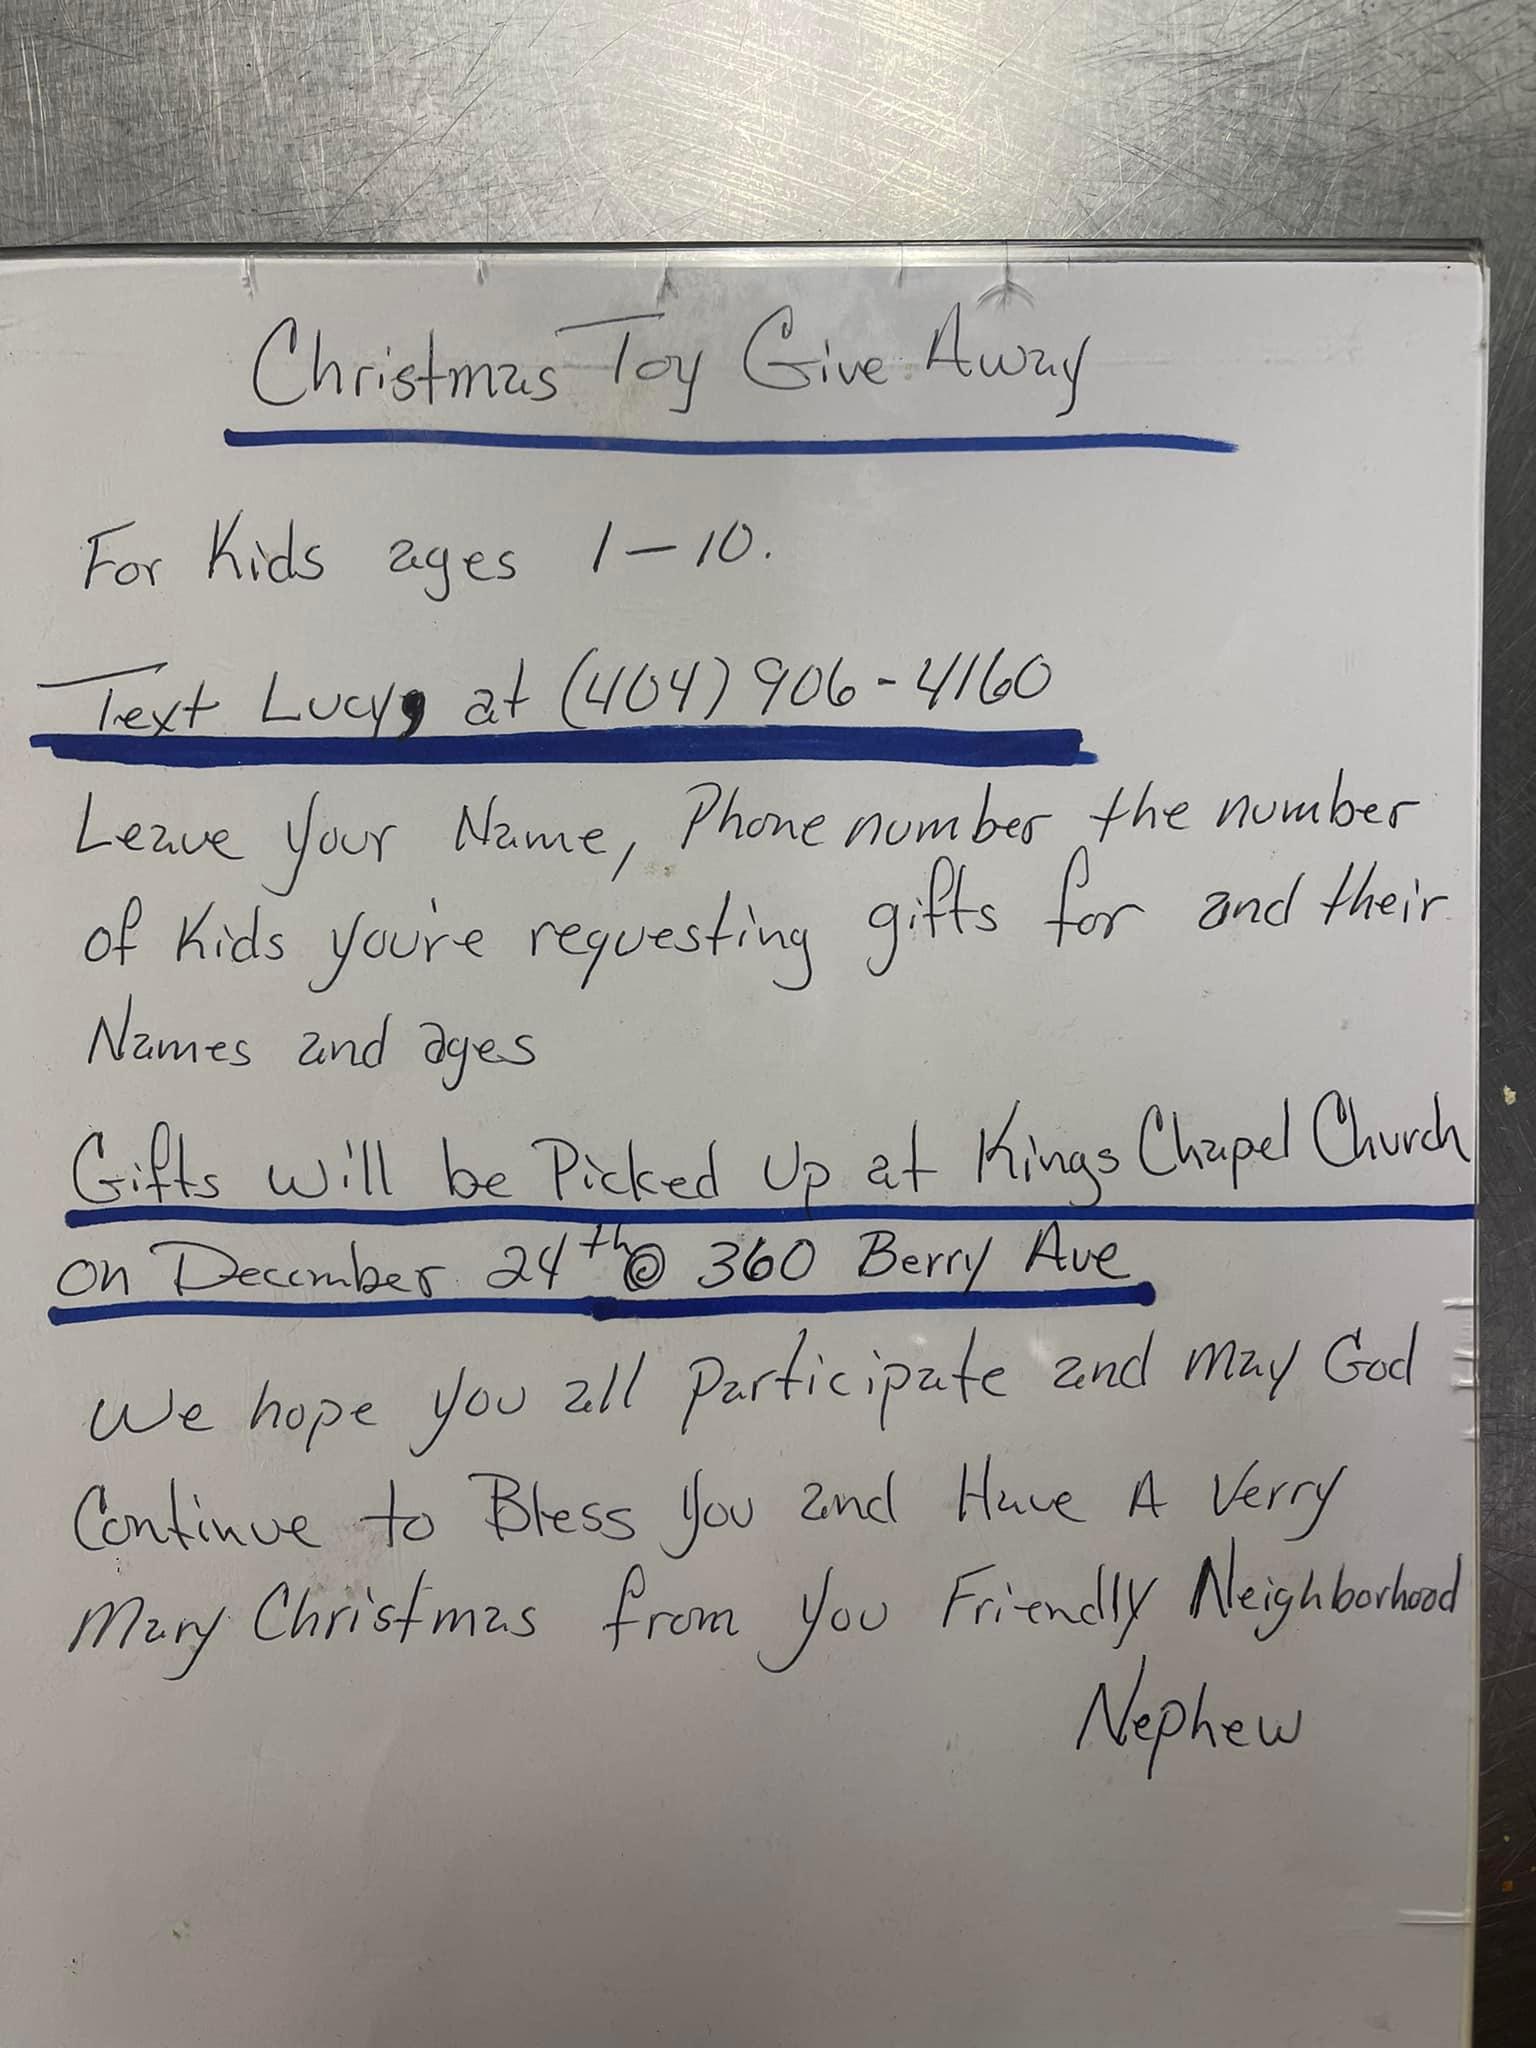 Christmas Toy Give Away
For Kids ages 1-10.
Text Lucy, at (404) 906-4160
Leave your Name, Phone number the number
of Kids you're requesting gifts for and their
Names and ages
Gifts will be Picked Up at Kings Chapel Church
on December 24th @ 360 Berry Ave
We hope you all participate and may God
Continue to Bless you and Have A Verry
Mary Christmas from you Friendly Neighborhood
Nephew